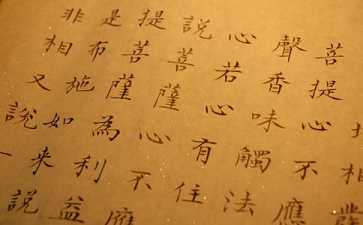 相
菩提心不應
聲香味觸法
心若心有住
說菩薩心不應
提菩薩為利益
是布施如来說
非相又說一